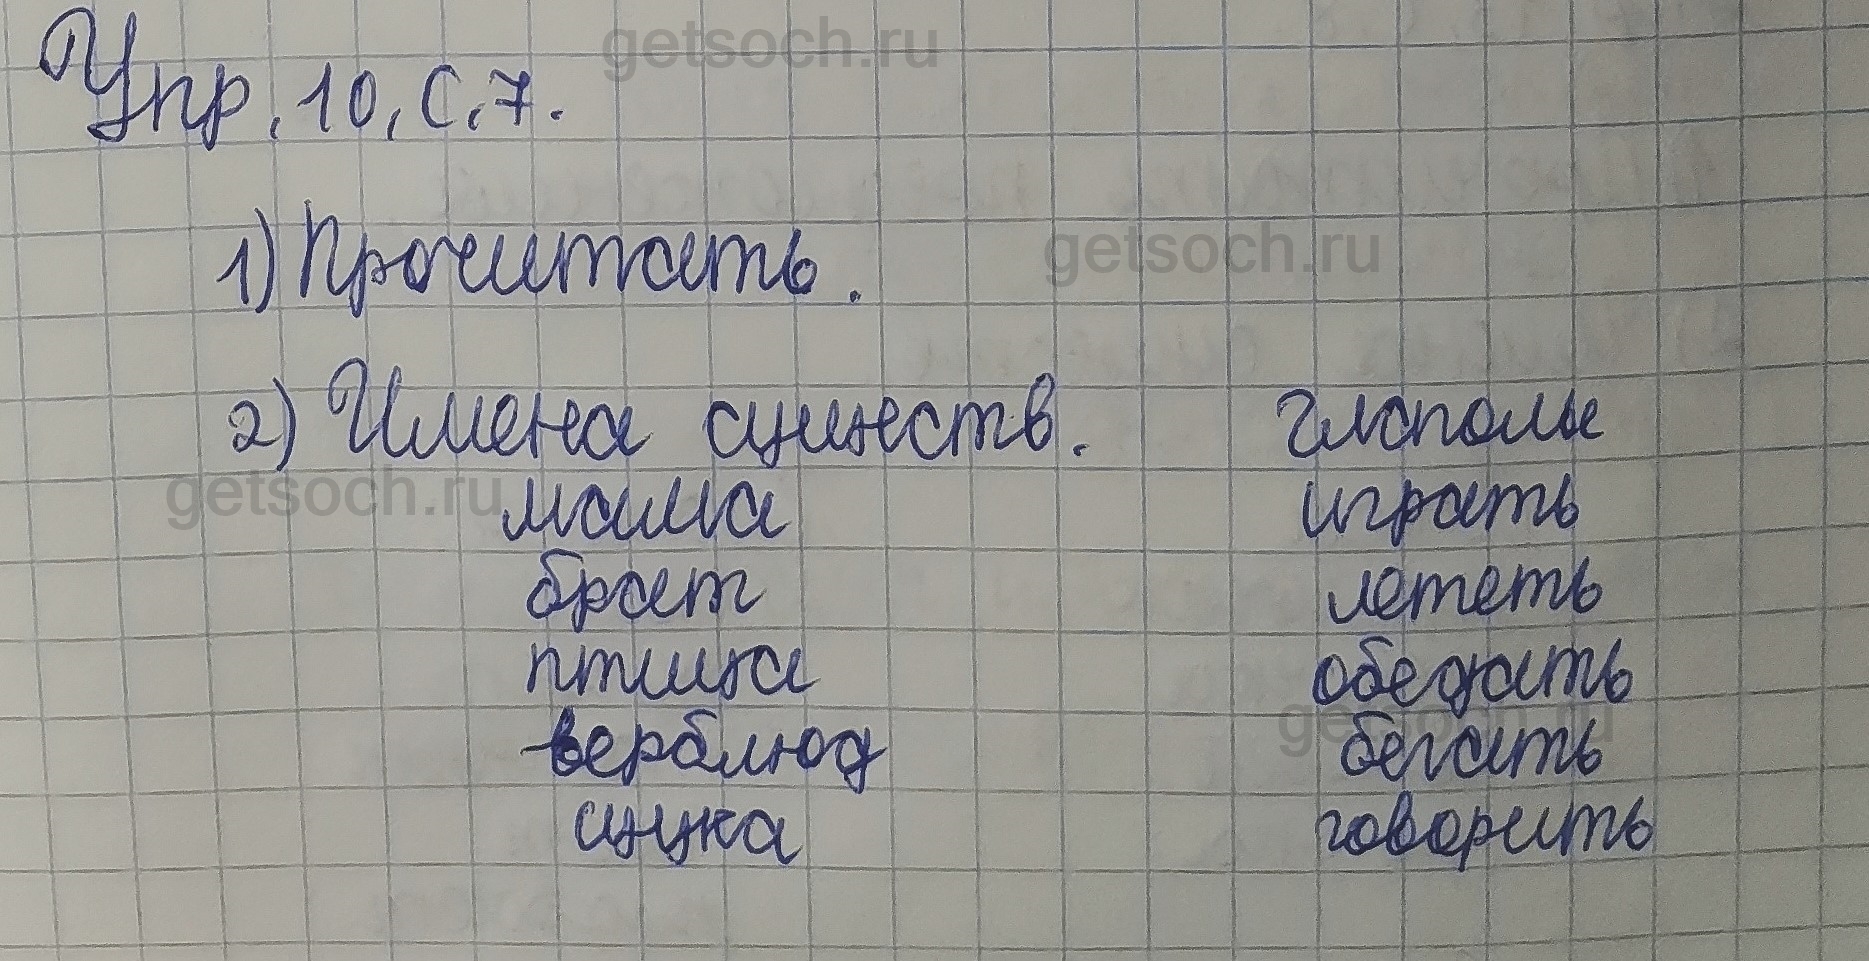 getsoch.ru
Упр. 10, С. 7.
1) Прочитать.
getsoch.ru
2) Имена существ. глаголы
getsoch.ru
мама играть
брат лететь
птица обежать
getsoch.ru
верблюд бегать
щука говорить